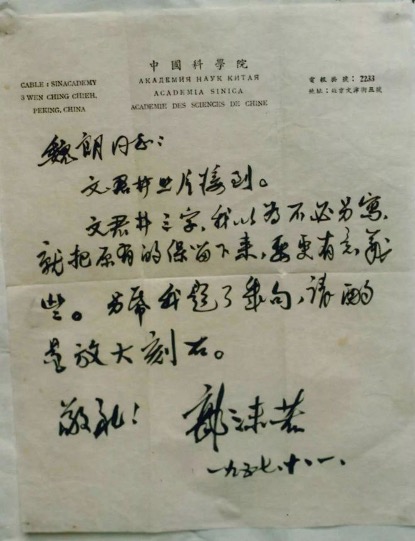 中國科學院
АКАДЕМИЯ НАУК КИТАЯ
ACADEMIA SINICA
ACADEMIE DES SCIENCES DE CHINE
CABLE: SINACADEMY
3 WEN CHING CHIEH,
PEKING, CHINA
電報掛號: 2233
地址: 北京文津街三號
魏朗同志:
文君井照片接到。
文君井三字,我以为不必另寫,
就把原有的保留下来,要更有意義
些。另帋我題了幾句,请酌
量放大刻石。
敬礼!
郭沫若
一九五七、十、一、